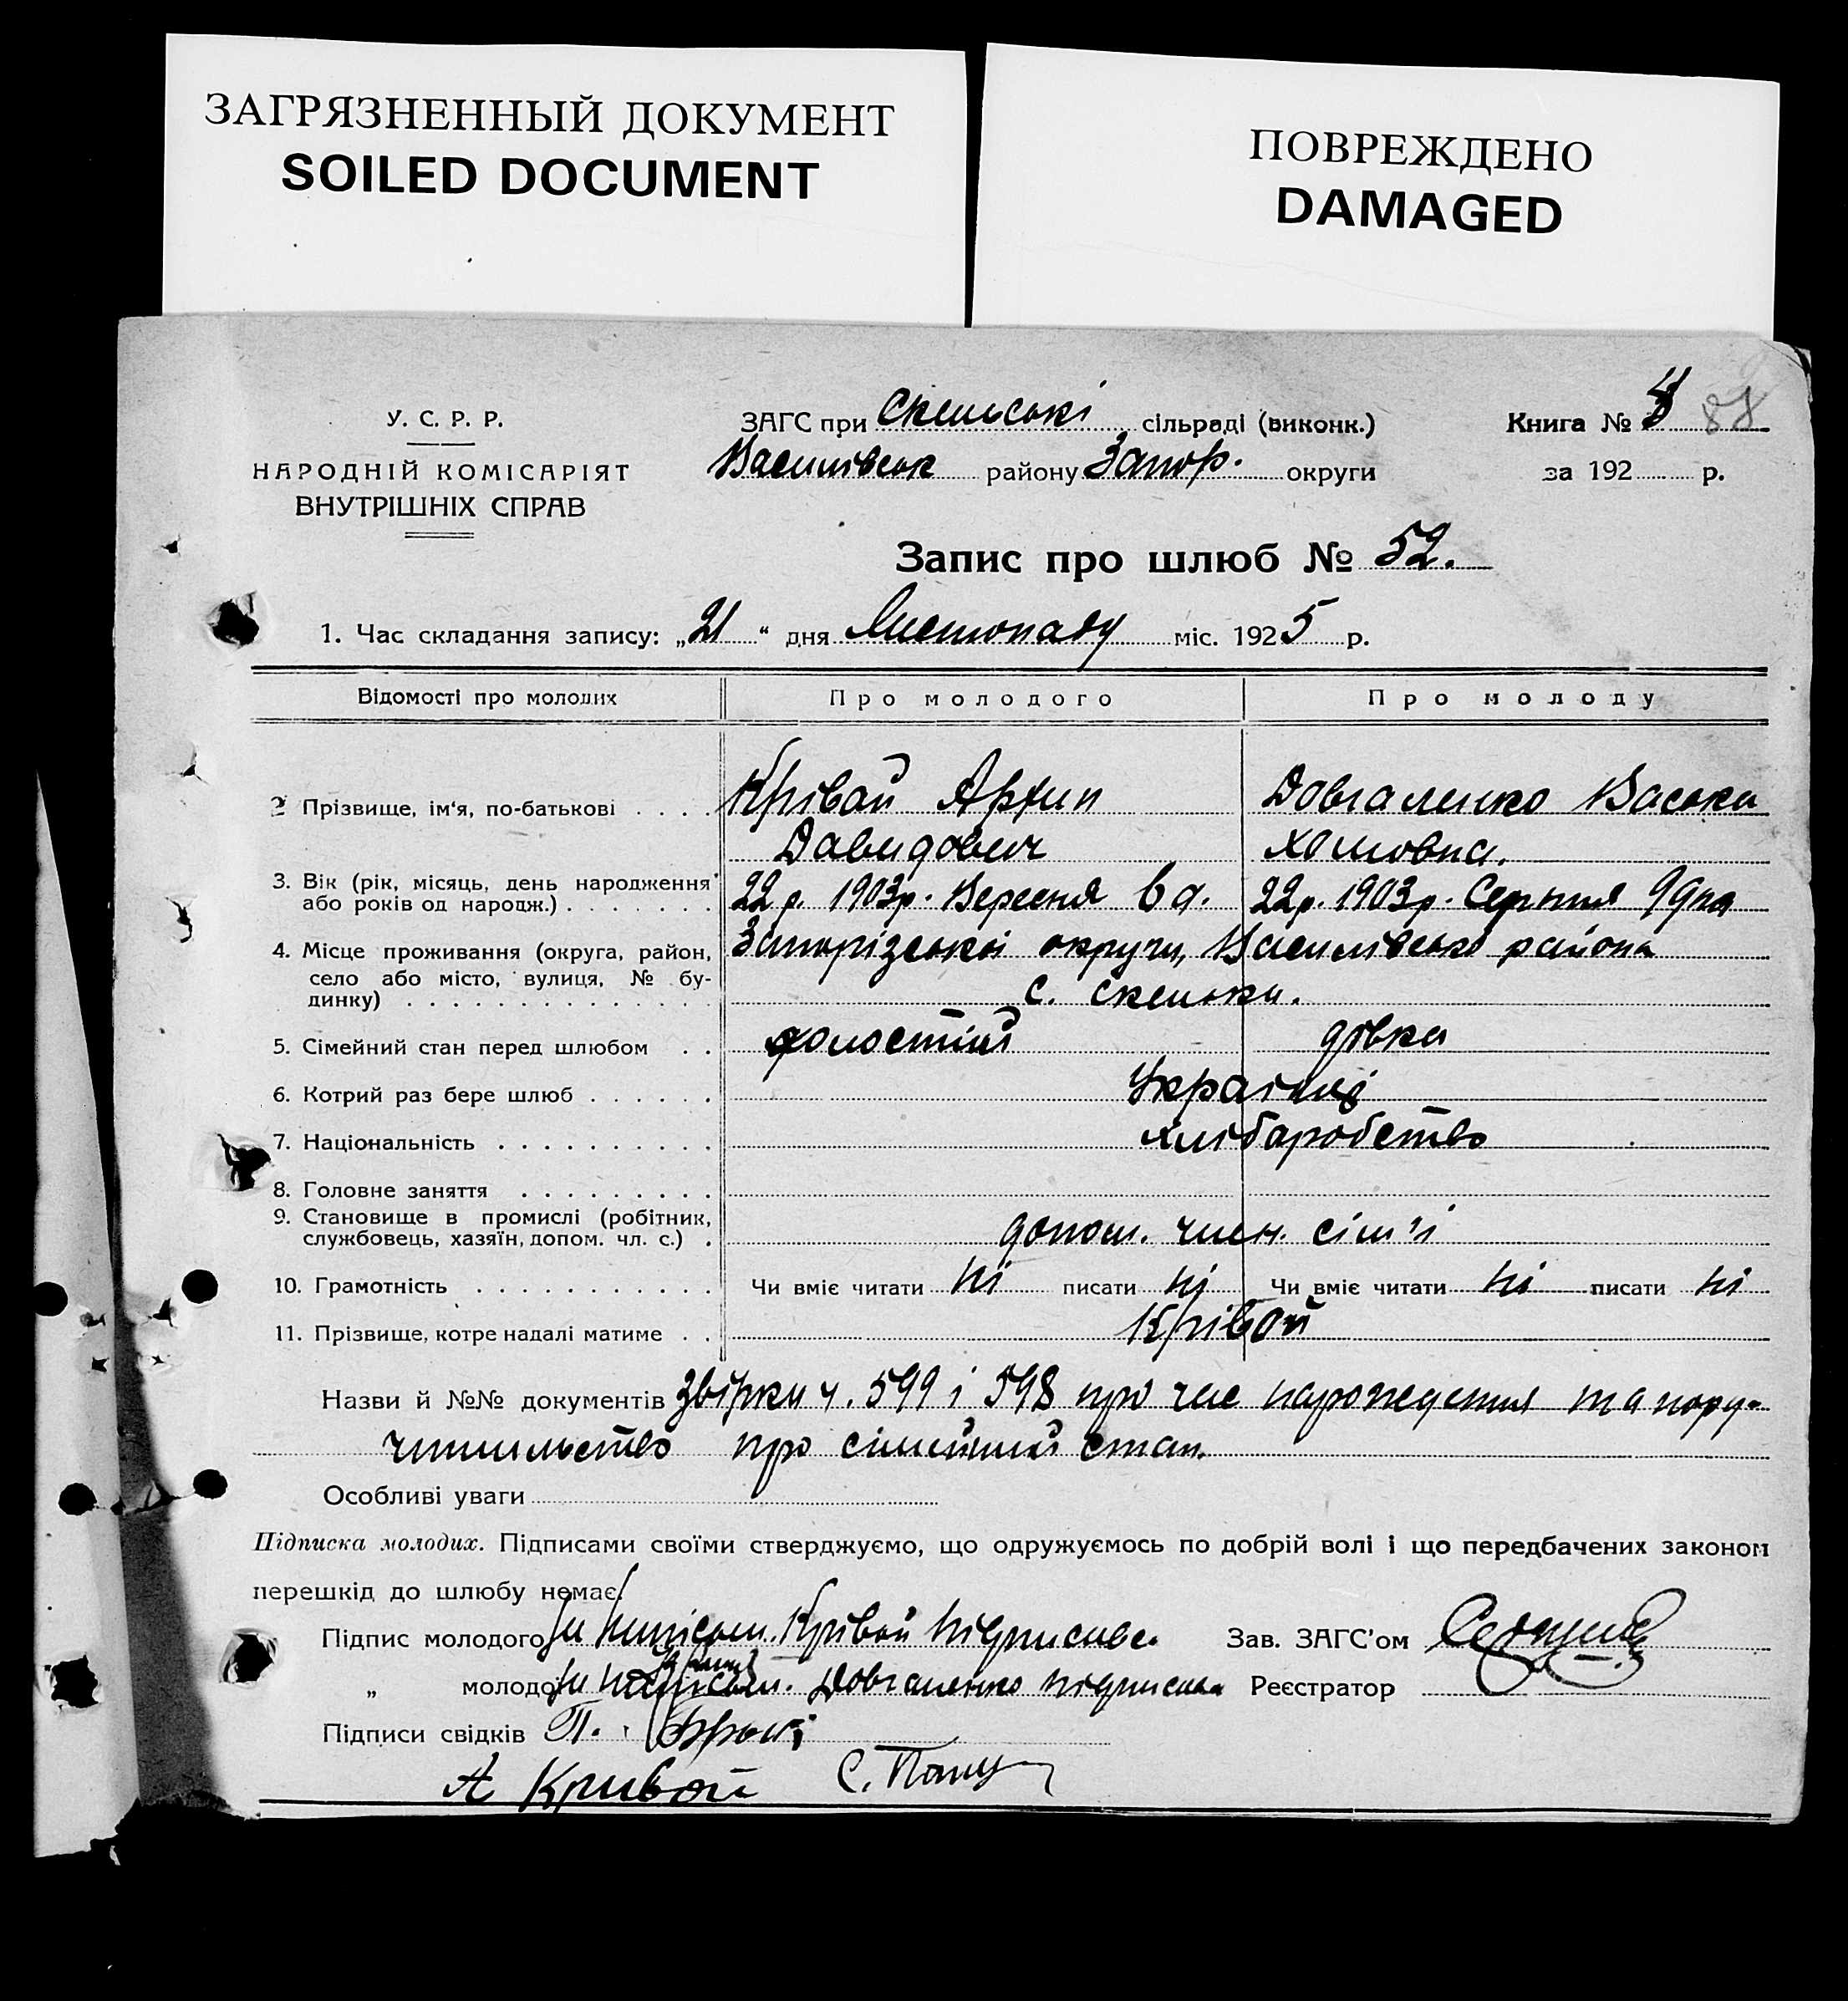 ЗАГРЯЗНЕННЫЙ ДОКУМЕНТ
SOILED DOCUMENT
ПОВРЕЖДЕНО
DAMAGED
У. С. Р. Р.
НАРОДНІЙ КОМІСАРІЯТ
ВНУТРІШНІХ СПРАВ
ЗАГС при Скельські сільраді (виконк.)
Василівськ району Запор. округи
Книга № 88
за 192 р.
Запис про шлюб № 52.
1. Час складання запису: „21“ дня Листопаду міс. 1925 р.
Відомості про молодих Про молодого Про молоду
2 Прізвище, ім'я, по-батькові . . . . Крівай Архип Довгаленко Васька
Давидович Хомовна.
3. Вік (рік, місяць, день народження або років од народж.) . . . . . . . 22 р. 1903р. Вересня 6 д. 22р. 1903р. Серпня 9 дня
4. Місце проживання (округа, район, Запорізської округи, Василівсько района
село або місто, вулиця, № бу-
динку) . . . . . . . . . . . . . . с. Скельки.
5. Сімейний стан перед шлюбом . . холостий дівка
6. Котрий раз бере шлюб . . . . . . Українці
7. Національність . . . . . . . . . . хлібаробство
8. Головне заняття . . . . . . . . .
9. Становище в промислі (робітник,
службовець, хазяїн, допом. чл. с.) . допом. член. сім'ї
10. Грамотність . . . . . . . . . . . Чи вміє читати ні писати ні Чи вміє читати ні писати ні
11. Прізвище, котре надалі матиме . . Крівой
Назви й №№ документів звірки ч. 599 і 598 про час нарождения та пору-
чительство про сімейний стан.
Особливі уваги
Підписка молодих. Підписами своїми стверджуємо, що одружуємось по добрій волі і що передбачених законом
перешкід до шлюбу немає.
Підпис молодого Крівой підписався Зав. ЗАГС'ом
„ молодої Довгаленко підписала Реєстратор
Підписи свідків П.
А Кривой С.